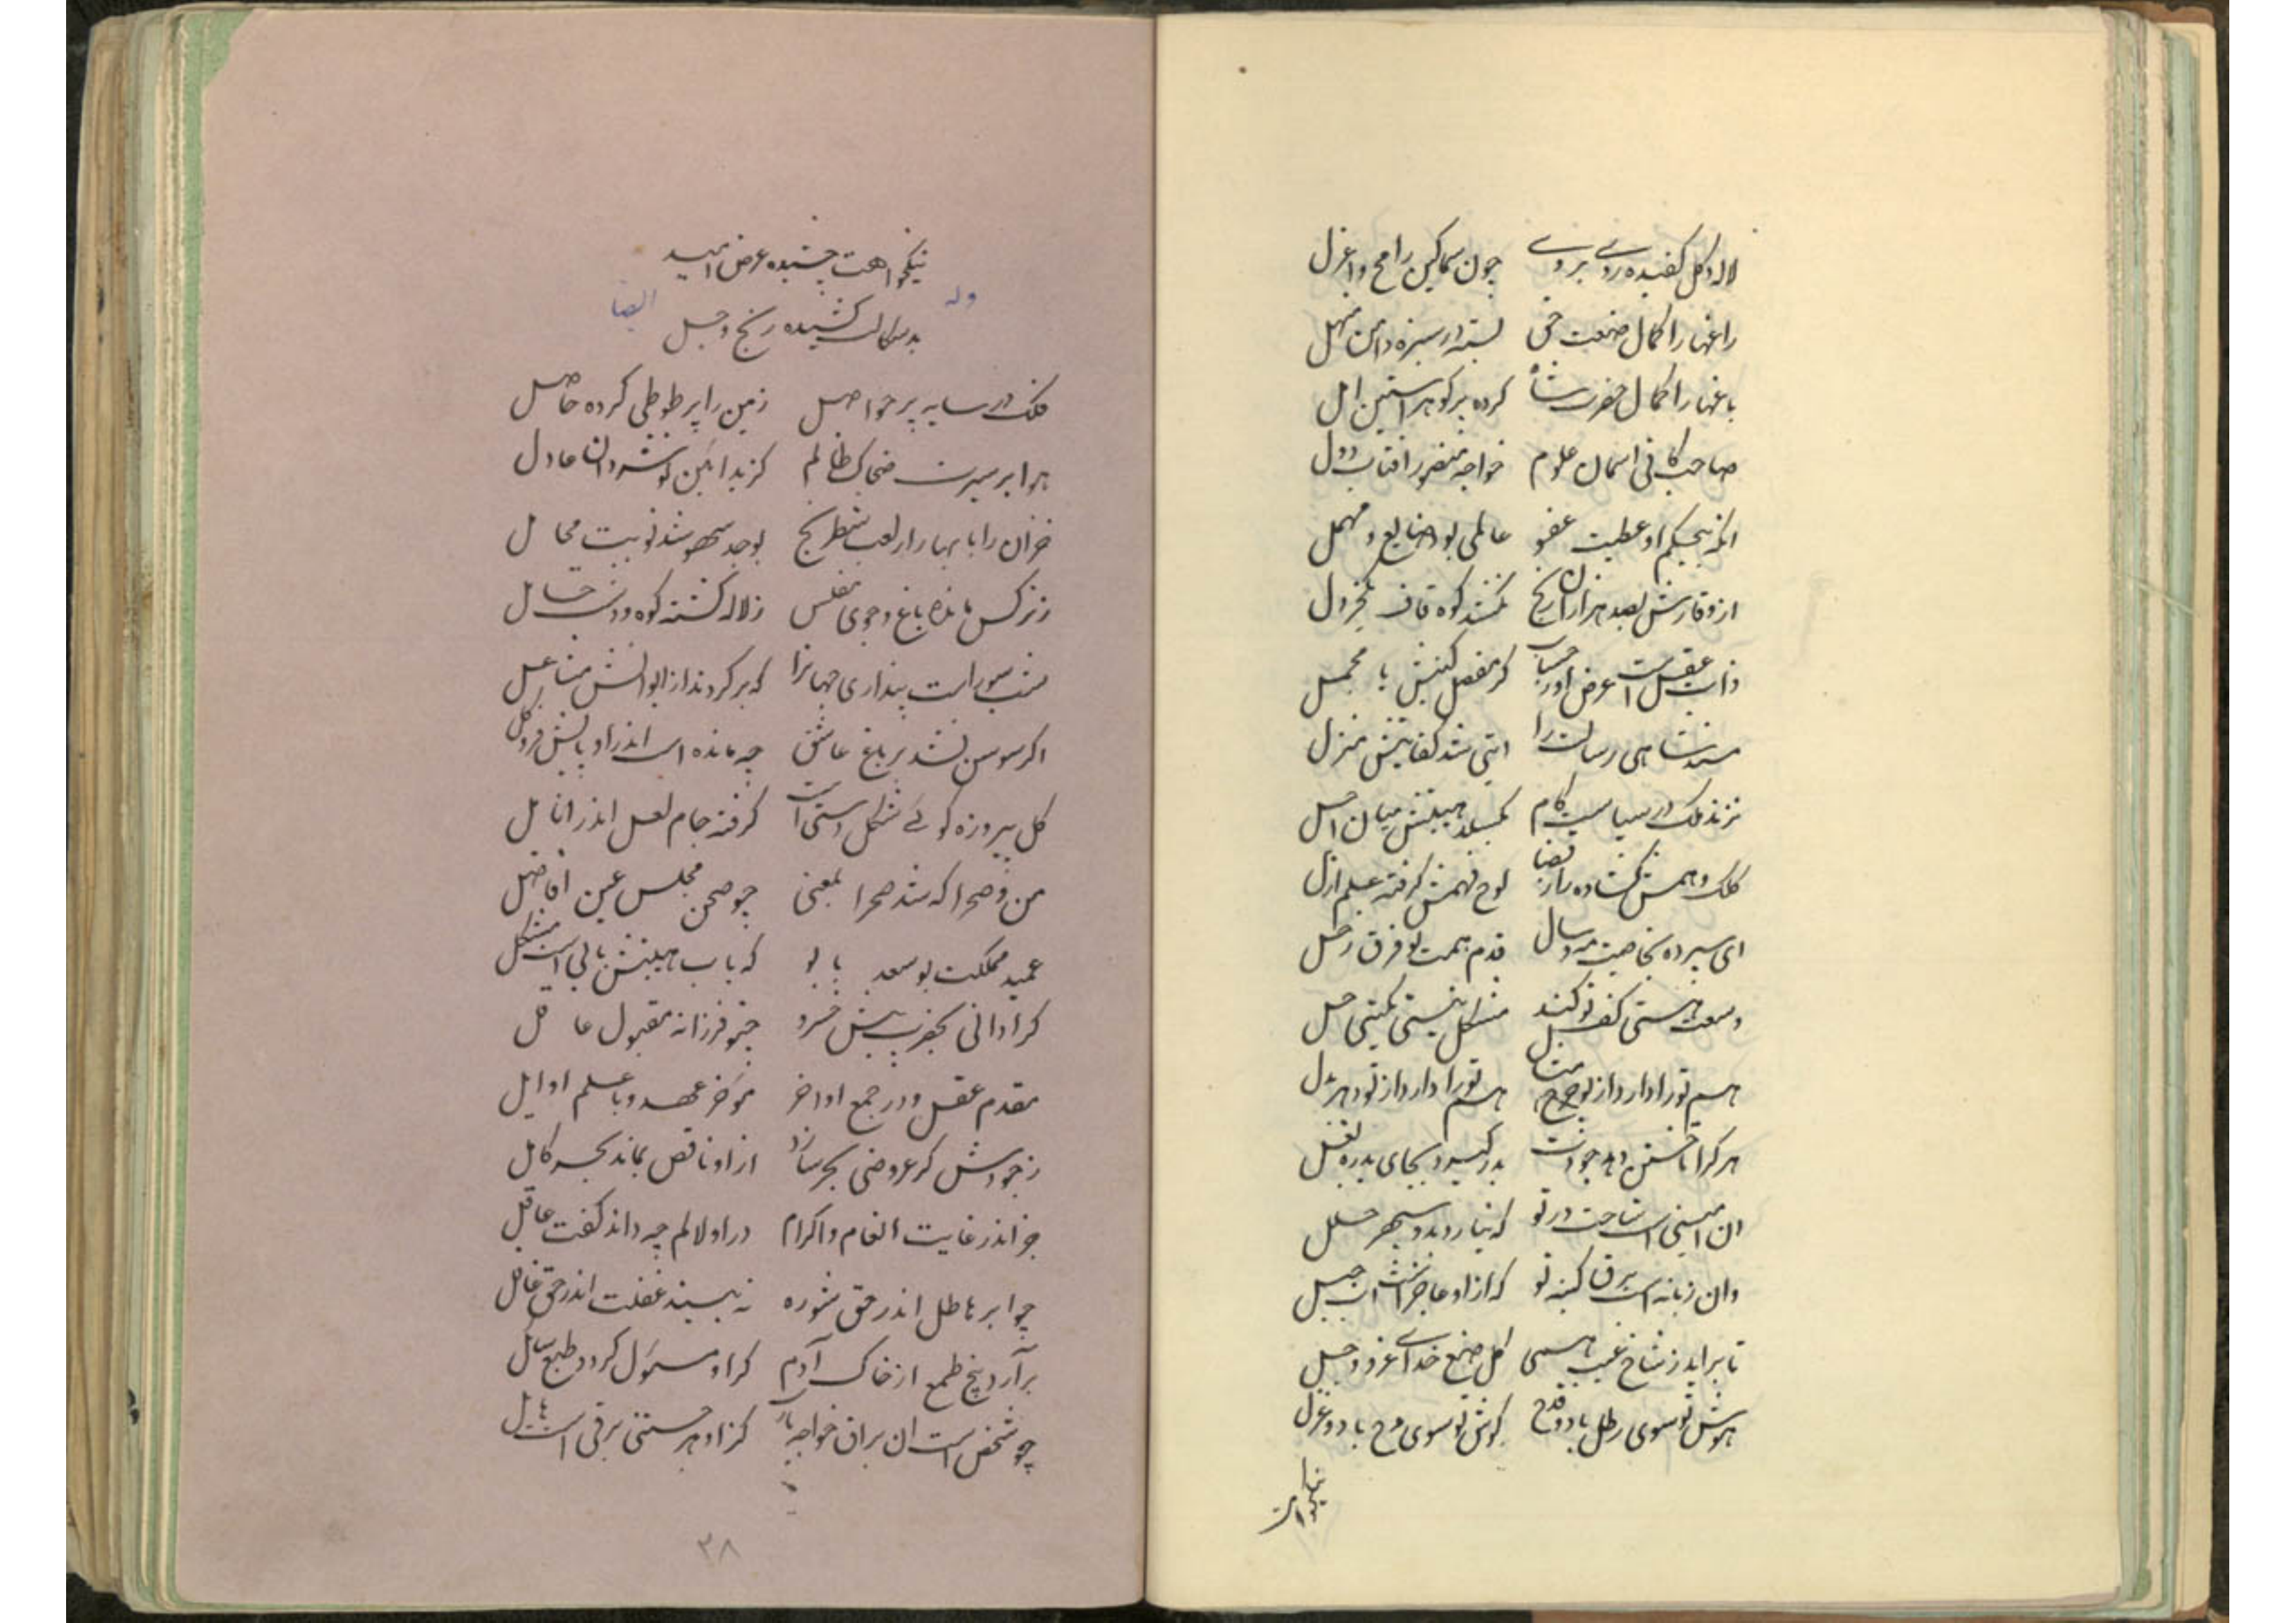 لاله و گل کفیده روی بروی چون سماکین رامح و اعزل
راغها را کمال صنعت حی بسته در سبزه دامن منهل
باغها را کمال حضرت شاه کرده پر گوهر استین امل
صاحب کافی اسمان علوم خواجه منصور افتاب دول
انکه بیحکم او عطیت عفو عالمی بود ضایع و مهمل
از وقارش بصد هزاران رنج نکشد کوه قاف خردل
ذات عقل است عرض اورا حساب گر مفصل کنیش یا مجمل
مسند شاهی رسالت را ایتی شد کفایتش منزل
نزند ملک در سیاست گام نکسلد هیبتش میان اجل
کلک وهمش گشاده راز قضا لوح فهمش گرفته علم ازل
ای سپرده بخاصیت مه و سال قدم همت تو فرق زحل
وسعت هستی کف تو کند مشکل نیستی بگیتی حل
هم تو را دارد از تو چرخ مثال هم تو را دارد از تو دهر بدل
هر کرا تاختن دهد جودت بدر گیرد بجای بدره بغل
ان امینی است ساحت در تو که نیارد بدو سپهر خلل
وان زبانه است برق کینه تو که از او عاجز است اب جبل
تا براید ز شاخ غیب همی گل صنع خدای عز و جل
هوش تو سوی رطل باد و قدح گوش تو سوی مدح باد و غزل
نیکخواهت
نیکخواهت چشیده عرض امید
وله ایضا
بدسگالت کشیده رنج و جل
فلک در سایه پر حواصل زمین را پر طوطی کرده حاصل
هوا بر سیرت ضحاک ظالم گزید ائین نوشروان عادل
خزان را با بهار از لعب شطرنج بوجد سهو شد نوبیت محایل
ز نرگس مانده باغ و جوی مفلس ز لاله گشته کوه و دشت حامل
شب سور است پنداری جهانرا که بر کردند از الوانش مشاعل
اگر سوسن نشد بر باغ عاشق چه مانده است اندر او پایش فرو گل
گل پیروزه گوئی شکل دستی است گرفته جام لعل اندر انامل
من و صحرا که شد صحرا بمعنی چو صحن مجلس عین افاضل
عمید مملکت بوسعد بابو که باب هیبتش بابی است مشکل
کرا دانی بجز پیش خرد چنو فرزانه مقبول عاقل
مقدم عقل و در جمع اواخر موخر عهد و با علم اوایل
ز جودش گر عروضی بحر سازد از او ناقص بماند بحر کامل
جز اندر غایت انعام و اکرام در او لالم چه داند گفت عاقل
چو ابر هاطل اندر حق شوره نه بیسند غفلت اندر حق غافل
برآرد بیخ طمع از خاک آدم گر او مسئول گردد طبع سایل
چو شخص است ان بران خواجه یارب کز او هر جستنی برقی است هایل
۳۸